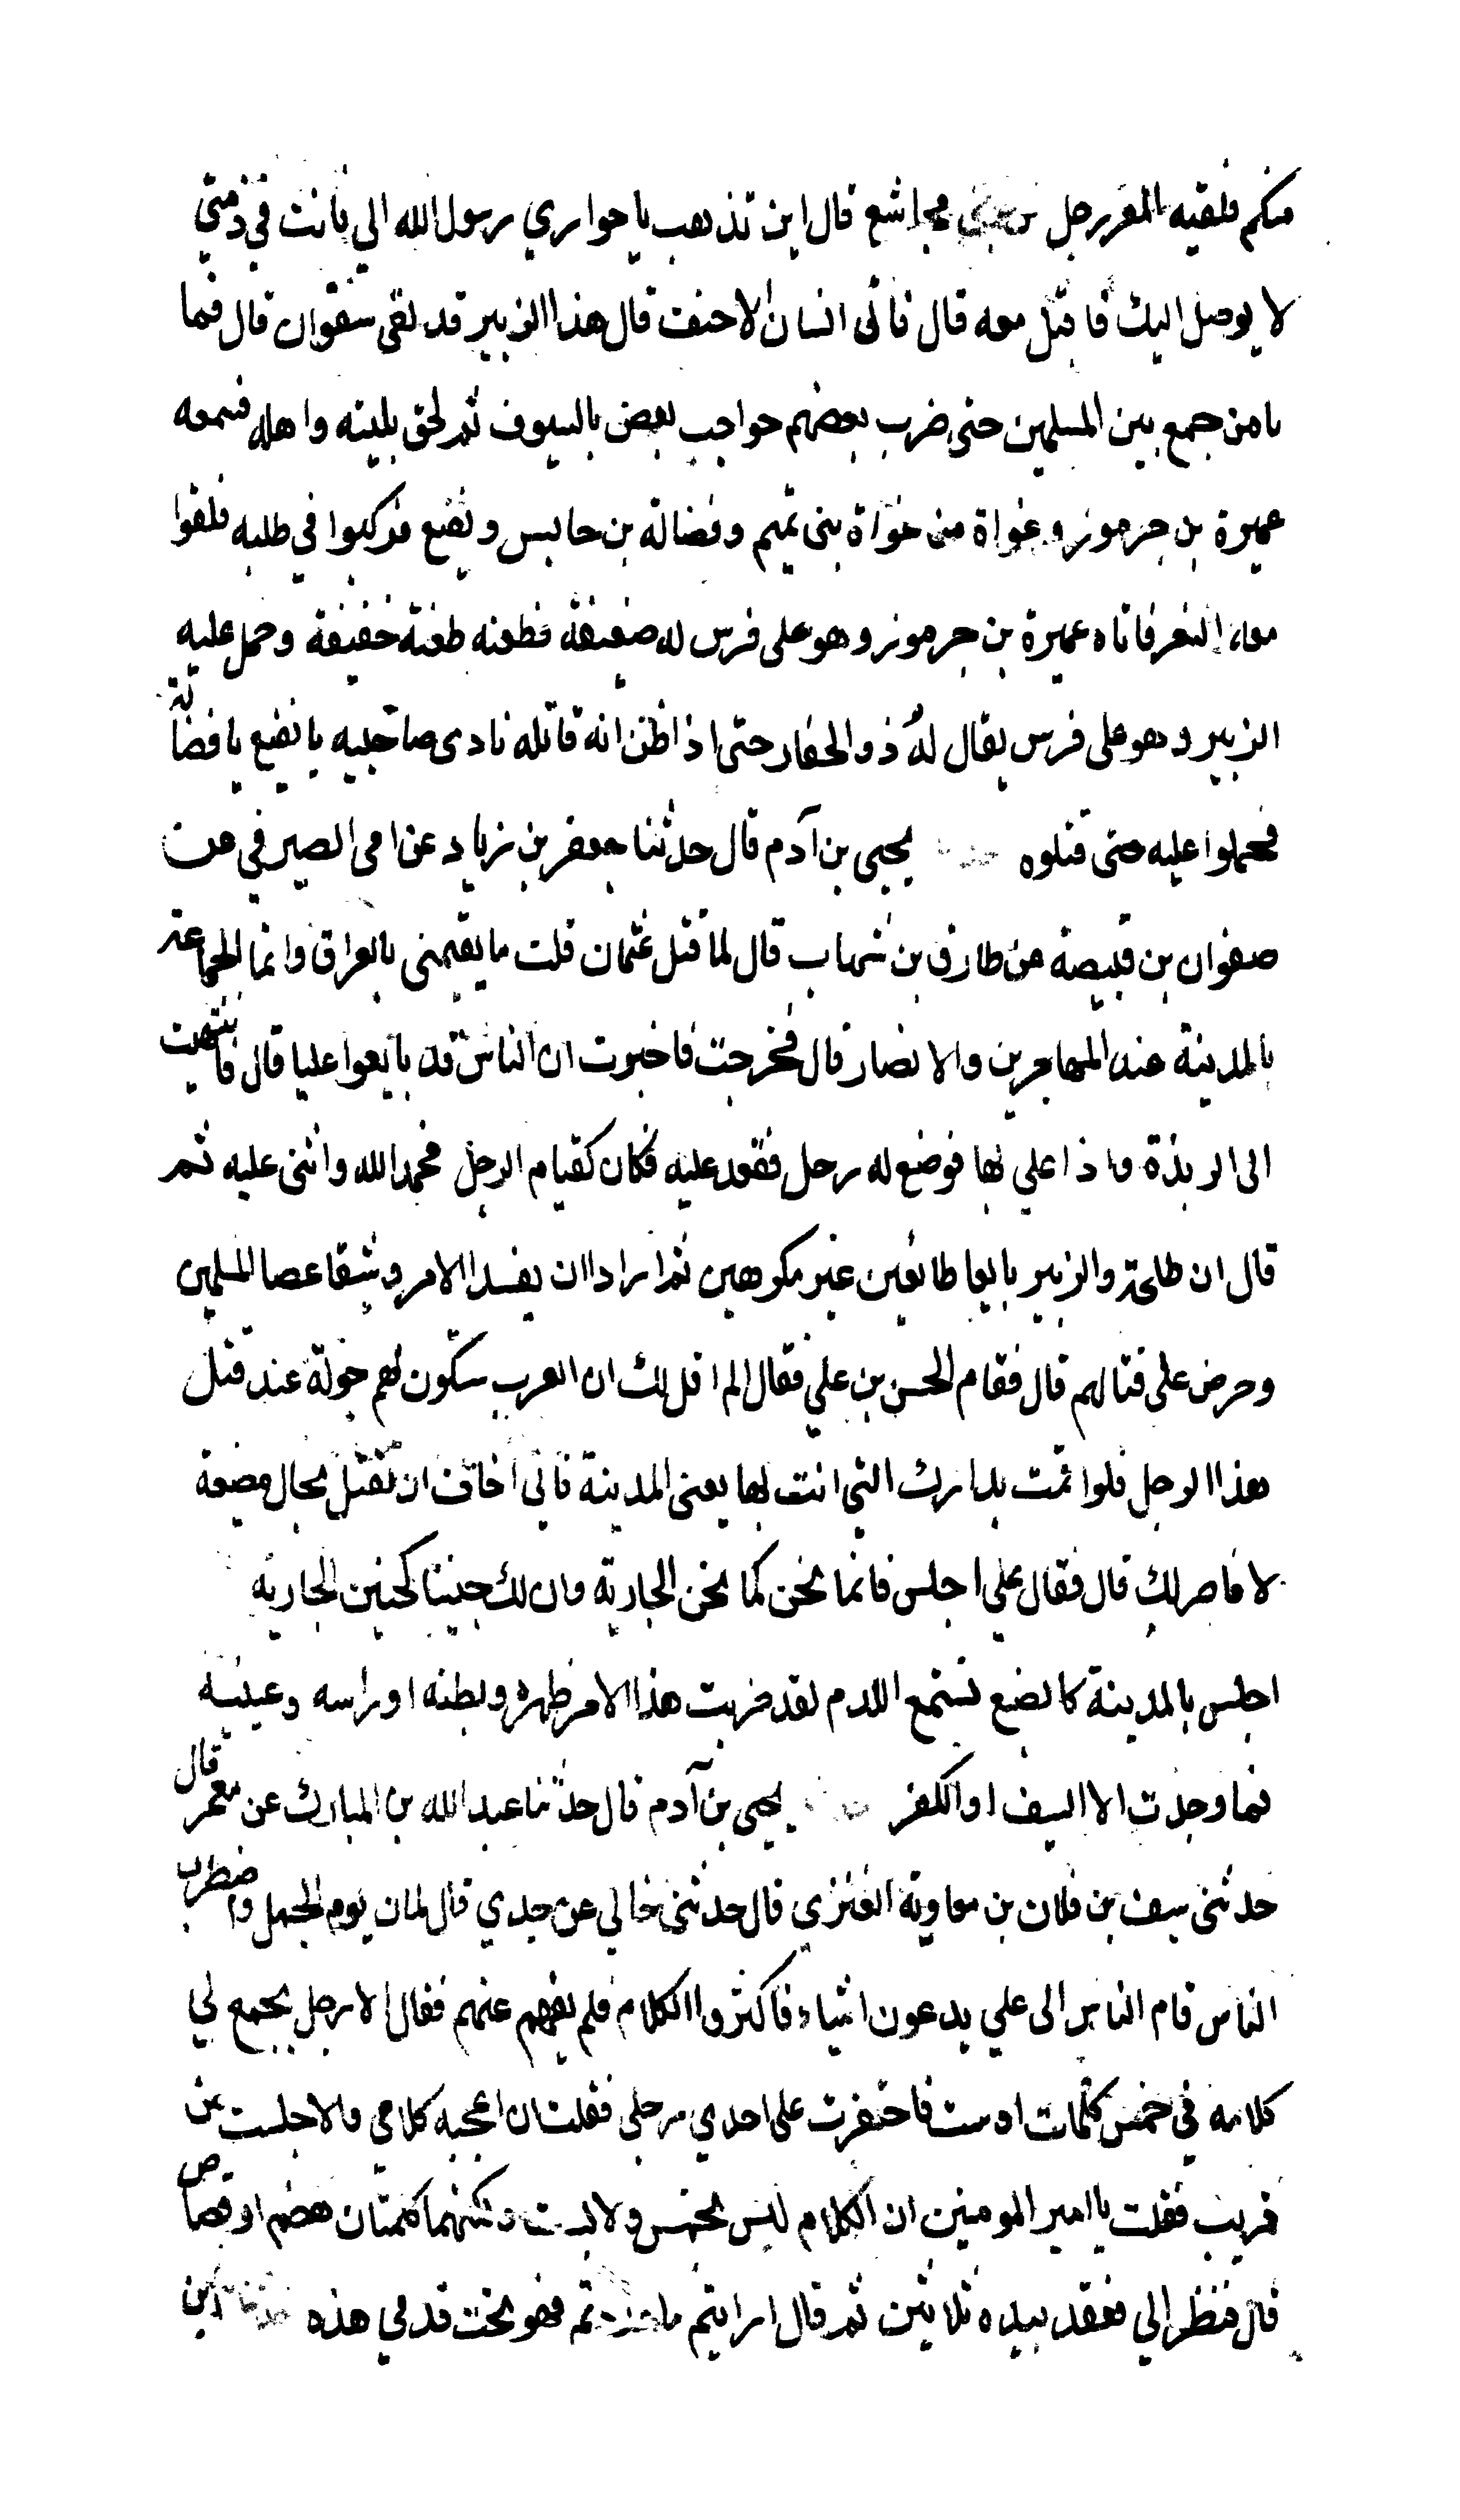 منكم فلقيه النفر رجل من مجاشع قال اين تذهب يا حواري رسول الله الي فانت في ذمتي
لا يوصل اليك فاقبل معه قال فاتى انسان الاحنف قال هذا الزبير قد لقي سفوان قال فما
يامن جمع بين المسلمين حتى ضرب بعضهم حواجب بعض بالسيوف ثم لحق ببيته واهله فسمعه
عميرة بن جرموز وغواة من غواة بنى تميم وفضالة بن حابس ونفيع فركبوا في طلبه فلقوا
معه النفر فاتاه عميرة بن جرموز وهو على فرس له ضعيفة فطعنه طعنة خفيفة وحمل عليه
الزبير وهو على فرس يقال له ذو الخمار حتى اذا ظن انه قاتله نادى صاحبيه يا نفيع يا فضالة
فحملوا عليه حتى قتلوه يحيى بن آدم قال حدثنا جعفر بن زياد عن امى الصيرفي عن
صفوان بن قبيصة عن طارق بن شهاب قال لما قتل عثمان قلت ما يقيمنى بالعراق وانما الجماعة
بالمدينة عند المهاجرين والانصار قال فخرجت فاخبرت ان الناس قد بايعوا عليا قال فانتهيت
الى الربذة واذا علي بها فوضع له رحل فقعد عليه فكان كقيام الرجل فحمد الله واثنى عليه ثم
قال ان طلحة والزبير بايعا طائعين غير مكرهين ثم ارادا ان يفسدا الامر ويشقا عصا المسلمين
وحرض على قتالهم قال فقام الحسن بن علي فقال الم اقل لك ان العرب ستكون لهم جولة عند قتل
هذا الرجل فلو اقمت بدارك التي انت بها يعنى المدينة فاني اخاف ان تقتل بحال مضيعة
لا ناصر لك قال فقال علي اجلس فانما تحن كما تحن الجارية وان لك حنينا كحنين الجارية
اجلس بالمدينة كالضبع تستمع اللدم لقد ضربت هذا الامر ظهره وبطنه او راسه وعينيه
فما وجدت الا السيف او الكفر يحيى بن آدم قال حدثنا عبد الله بن المبارك عن معمر قال
حدثني سيف بن فلان بن معاوية العنزي قال حدثني خالي عن جدي قال لما كان يوم الجمل واضطرب
الناس قام الناس الى علي يدعون اشياء فاكثروا الكلام فلم يفهم عنهم فقال الا رجل يجمع لي
كلامه في خمس كلمات او ست فاحتفزت على احدي رجلي فقلت ان اعجبه كلامي والا جلست من
قريب فقلت يا امير المومنين ان الكلام ليس بخمس ولا بست ولكنهما كلمتان هضم او قصاص
قال فنظر الي فعقد بيده ثلاثين ثم قال ارايتم ما عددتم فهو تحت قدمي هذه ابن